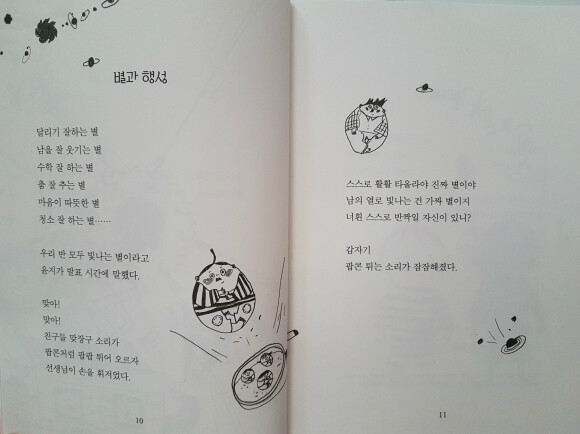 별과 행성
달리기 잘하는 별
남을 잘 웃기는 별
수학 잘 하는 별
춤 잘 추는 별
마음이 따뜻한 별
청소 잘 하는 별……
우리 반 모두 빛나는 별이라고
윤지가 발표 시간에 말했다.
맞아!
맞아!
친구들 맞장구 소리가
팝콘처럼 팝팝 튀어 오르자
선생님이 손을 휘저었다.
10
스스로 활활 타올라야 진짜 별이야
남의 열로 빛나는 건 가짜 별이지
너흰 스스로 반짝일 자신이 있니?
갑자기
팝콘 튀는 소리가 잠잠해졌다.
11